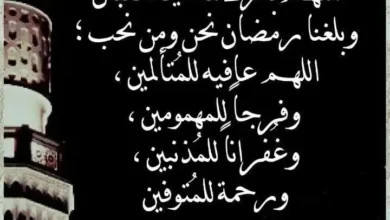 وبلغنا رمضان نحن ومن نحب ؛
اللهم عافيه للمُتألمين ،
وفرجاً للمهمومين ،
وغُفراناً للمُذنبين ،
ورحمة للمُتوفين